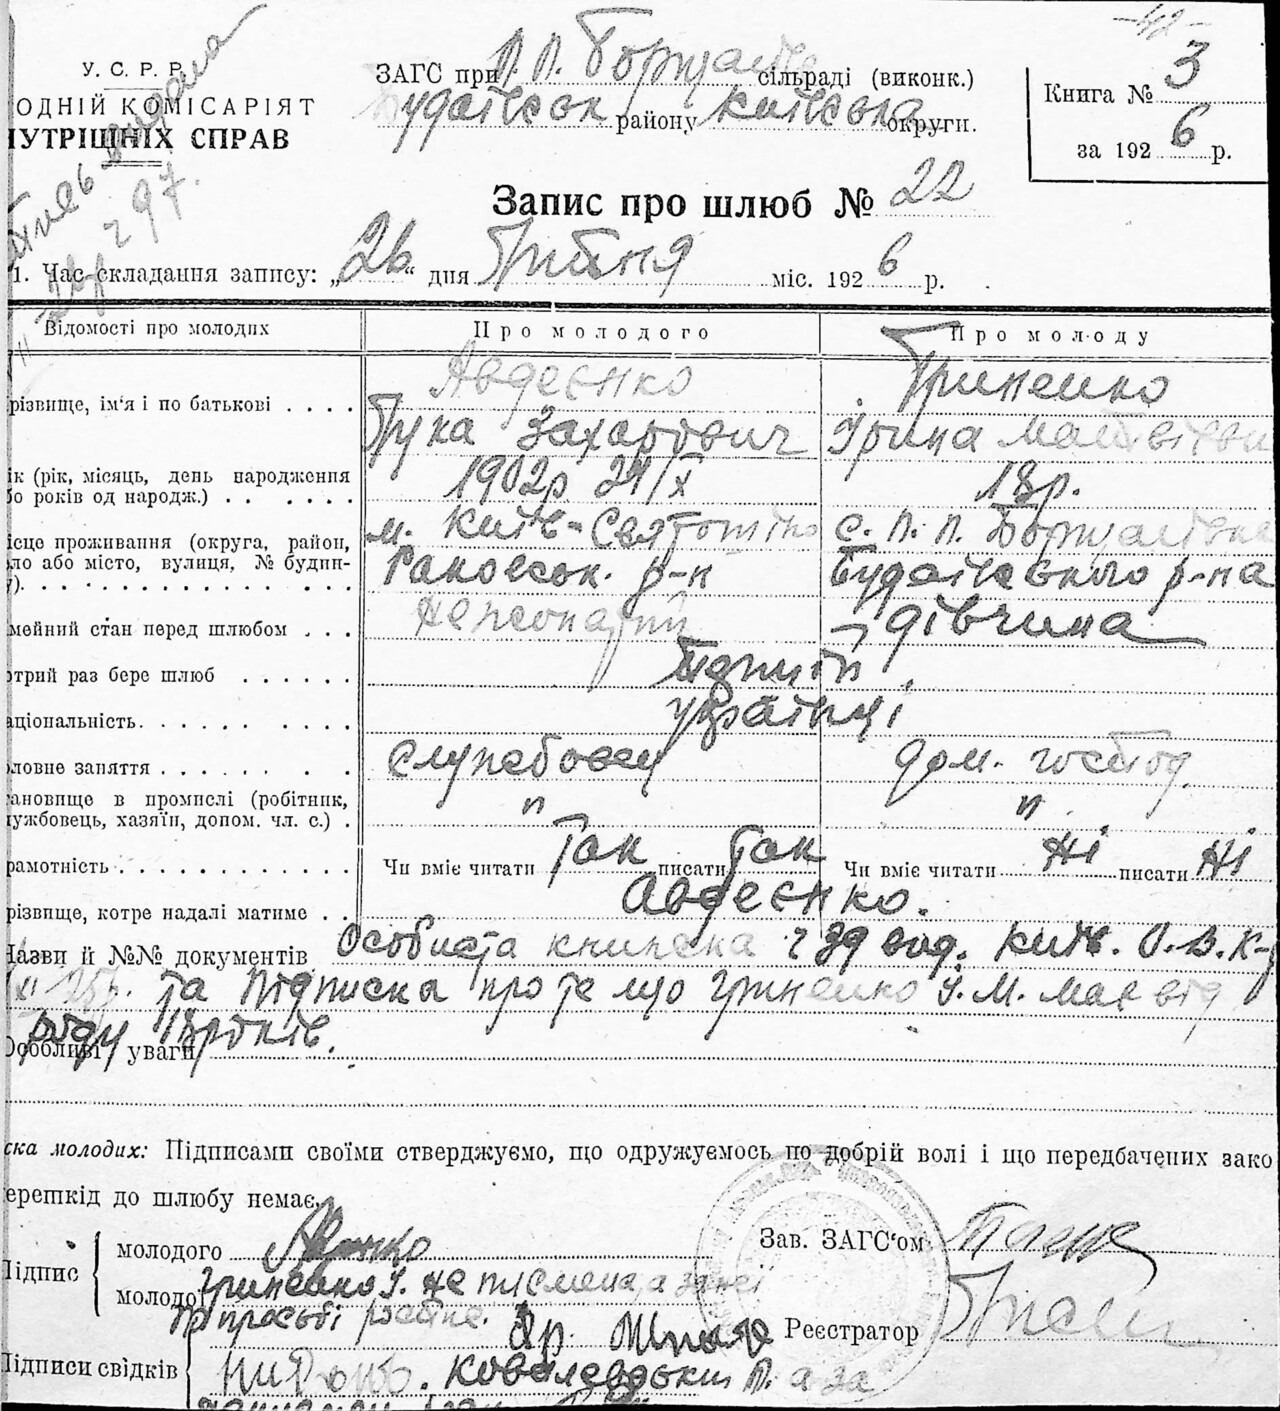 -42-
У. С. Р. Р.
ОДНІЙ КОМІСАРІЯТ
НУТРІШНІХ СПРАВ
видана
297.
ЗАГС при П. П. Борщагів сільраді (виконк.)
Будаївськ району Київська округи.
Книга № 3
за 1926 р.
Запис про шлюб № 22
1. Час складання запису: „26“ дня міс. 1926 р.
Відомості про молодих
Про молодого
Про молоду
різвище, ім'я і по батькові . . . .
Авдєєнко
Лука Захарович
Гриненко
Ірина Матвіївн
ік (рік, місяць, день народження
бо років од народж.) . . . . . .
1902р 24/X
18р.
ісце проживання (округа, район,
ло або місто, вулиця, № будин-
у).
м. Київ-Святошино
р-н
с. П. П. Борщагівка
Будаївського р-на
мейний стан перед шлюбом . . .
нежонатий
дівчина
отрий раз бере шлюб . . . . . .
аціональність.
українці
ловне заняття
службовец
дом. господ.
ановище в промислі (робітник,
ужбовець, хазяїн, допом. чл. с.) .
"
"
рамотність
Чи вміє читати так писати так
Чи вміє читати ні писати ні
різвище, котре надалі матиме . .
Авдєєнко.
Назви й №№ документів Особиста книжка 239 вид. Київ. О.В.К-
та підписка про те що Гриненко І. М. має від
роду 18 років.
Особливі уваги
ска молодих: Підписами своїми стверджуємо, що одружуємось по добрій волі і що передбачених зако
ерешкід до шлюбу немає.
Підпис
молодого
молодої Гриненко І. не письмена, а за неї
по просьбі
Зав. ЗАГС'ом
Реєстратор
Підписи свідків
Ковалевський П. а за